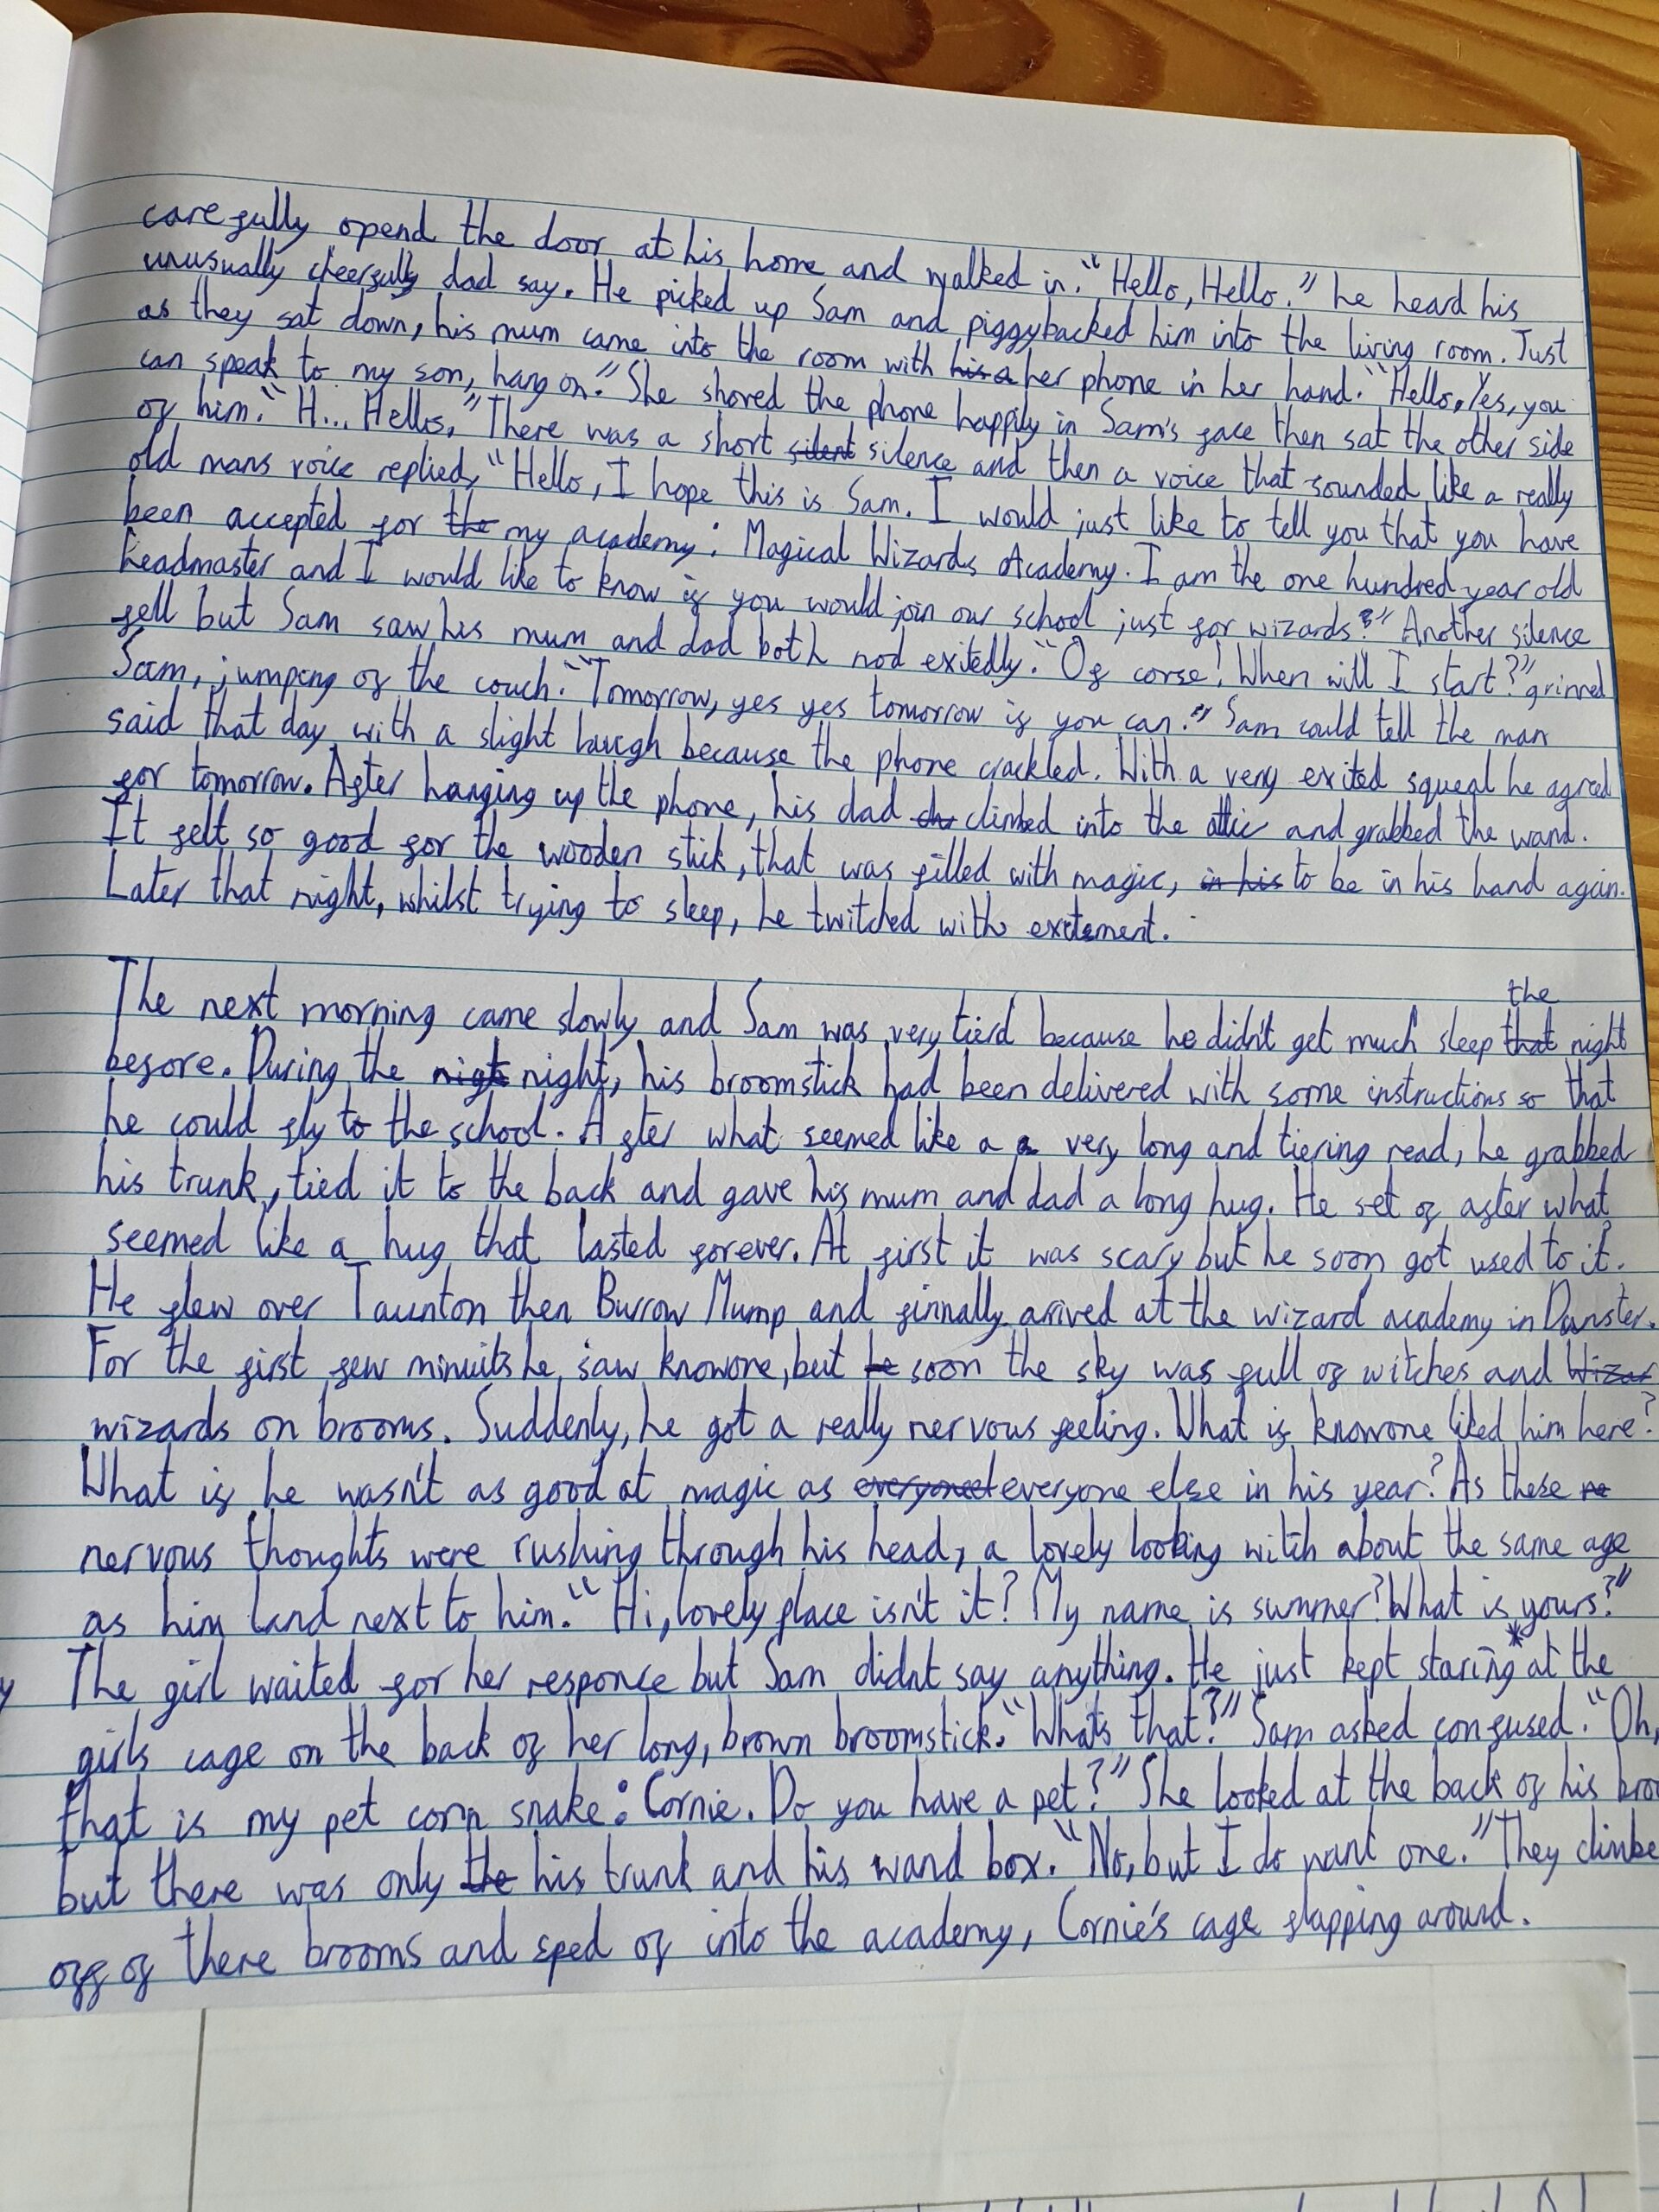 carefully opend the door at his home and walked in. "Hello, Hello." he heard his
unusually cheerfully dad say. He picked up Sam and piggybacked him into the living room. Just
as they sat down, his mum came into the room with his a her phone in her hand. "Hello, Yes, you
can speak to my son, hang on." She shoved the phone happily in Sam's face then sat the other side
of him. "H... Hello," There was a short silent silence and then a voice that sounded like a really
old mans voice replied, "Hello, I hope this is Sam. I would just like to tell you that you have
been accepted for the my academy: Magical Wizards Academy. I am the one hundred year old
headmaster and I would like to know if you would join our school just for wizards?" Another silence
fell but Sam saw his mum and dad both nod exitedly. "Of corse! When will I start?" grinned
Sam, jumping of the couch. "Tomorrow, yes yes tomorrow if you can." Sam could tell the man
said that day with a slight laugh because the phone crackled. With a very exited squeal he agreed
for tomorrow. After hanging up the phone, his dad climbed into the attic and grabbed the wand.
It felt so good for the wooden stick, that was filled with magic, in his to be in his hand again.
Later that night, whilst trying to sleep, he twitched with excitement.
the
The next morning came slowly and Sam was very tierd because he didn't get much sleep that night
before. During the night, his broomstick had been delivered with some instructions so that
he could fly to the school. After what seemed like a a very long and tiering read, he grabbed
his trunk, tied it to the back and gave his mum and dad a long hug. He set of after what
seemed like a hug that lasted forever. At first it was scary but he soon got used to it.
He flew over Taunton then Burrow Mump and finnally arrived at the wizard academy in Dunster.
For the first few minuits he saw knowone, but he soon the sky was full of witches and Wizar
wizards on brooms. Suddenly, he got a really nervous feeling. What if knowone liked him here?
What if he wasn't as good at magic as everyoneel everyone else in his year? As these ne
nervous thoughts were rushing through his head, a lovely looking witch about the same age
as him land next to him. "Hi, lovely place isn't it? My name is summer? What is yours?"
The girl waited for her responce but Sam didnt say anything. He just kept staring * at the
y
girls cage on the back of her long, brown broomstick. "Whats that?" Sam asked confused. "Oh,
that is my pet corn snake: Cornie. Do you have a pet?" She looked at the back of his broo
but there was only the his trunk and his wand box. "No, but I do want one." They climbe
off of there brooms and sped of into the academy, Cornie's cage flapping around.